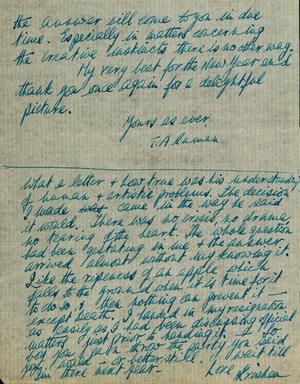 the answer will come to you in due
time. Especially in matters concerning
the creative instincts there is no other way.
My very best for the New Year and
thank you once again for a delightful
picture.
Yours as ever
T. A. Raman
What a letter + how true was his understanding
of human + artistic problems. The decision
I made came in the way he said
it would. There was no crisis, no drama
no tearing of the heart. The whole question
had been gestating in me + the answer
arrived almost without my knowing it.
Like the ripeness of an apple which
falls to the ground when it is time for it
to do so, + then nothing can prevent it
except Death. I handed in my resignation
as easily as I had been discussing official
matters just prior to handing it to
boy you can throw the party you said
you would — or better still wait till
I'm there next year —
Love Krishen